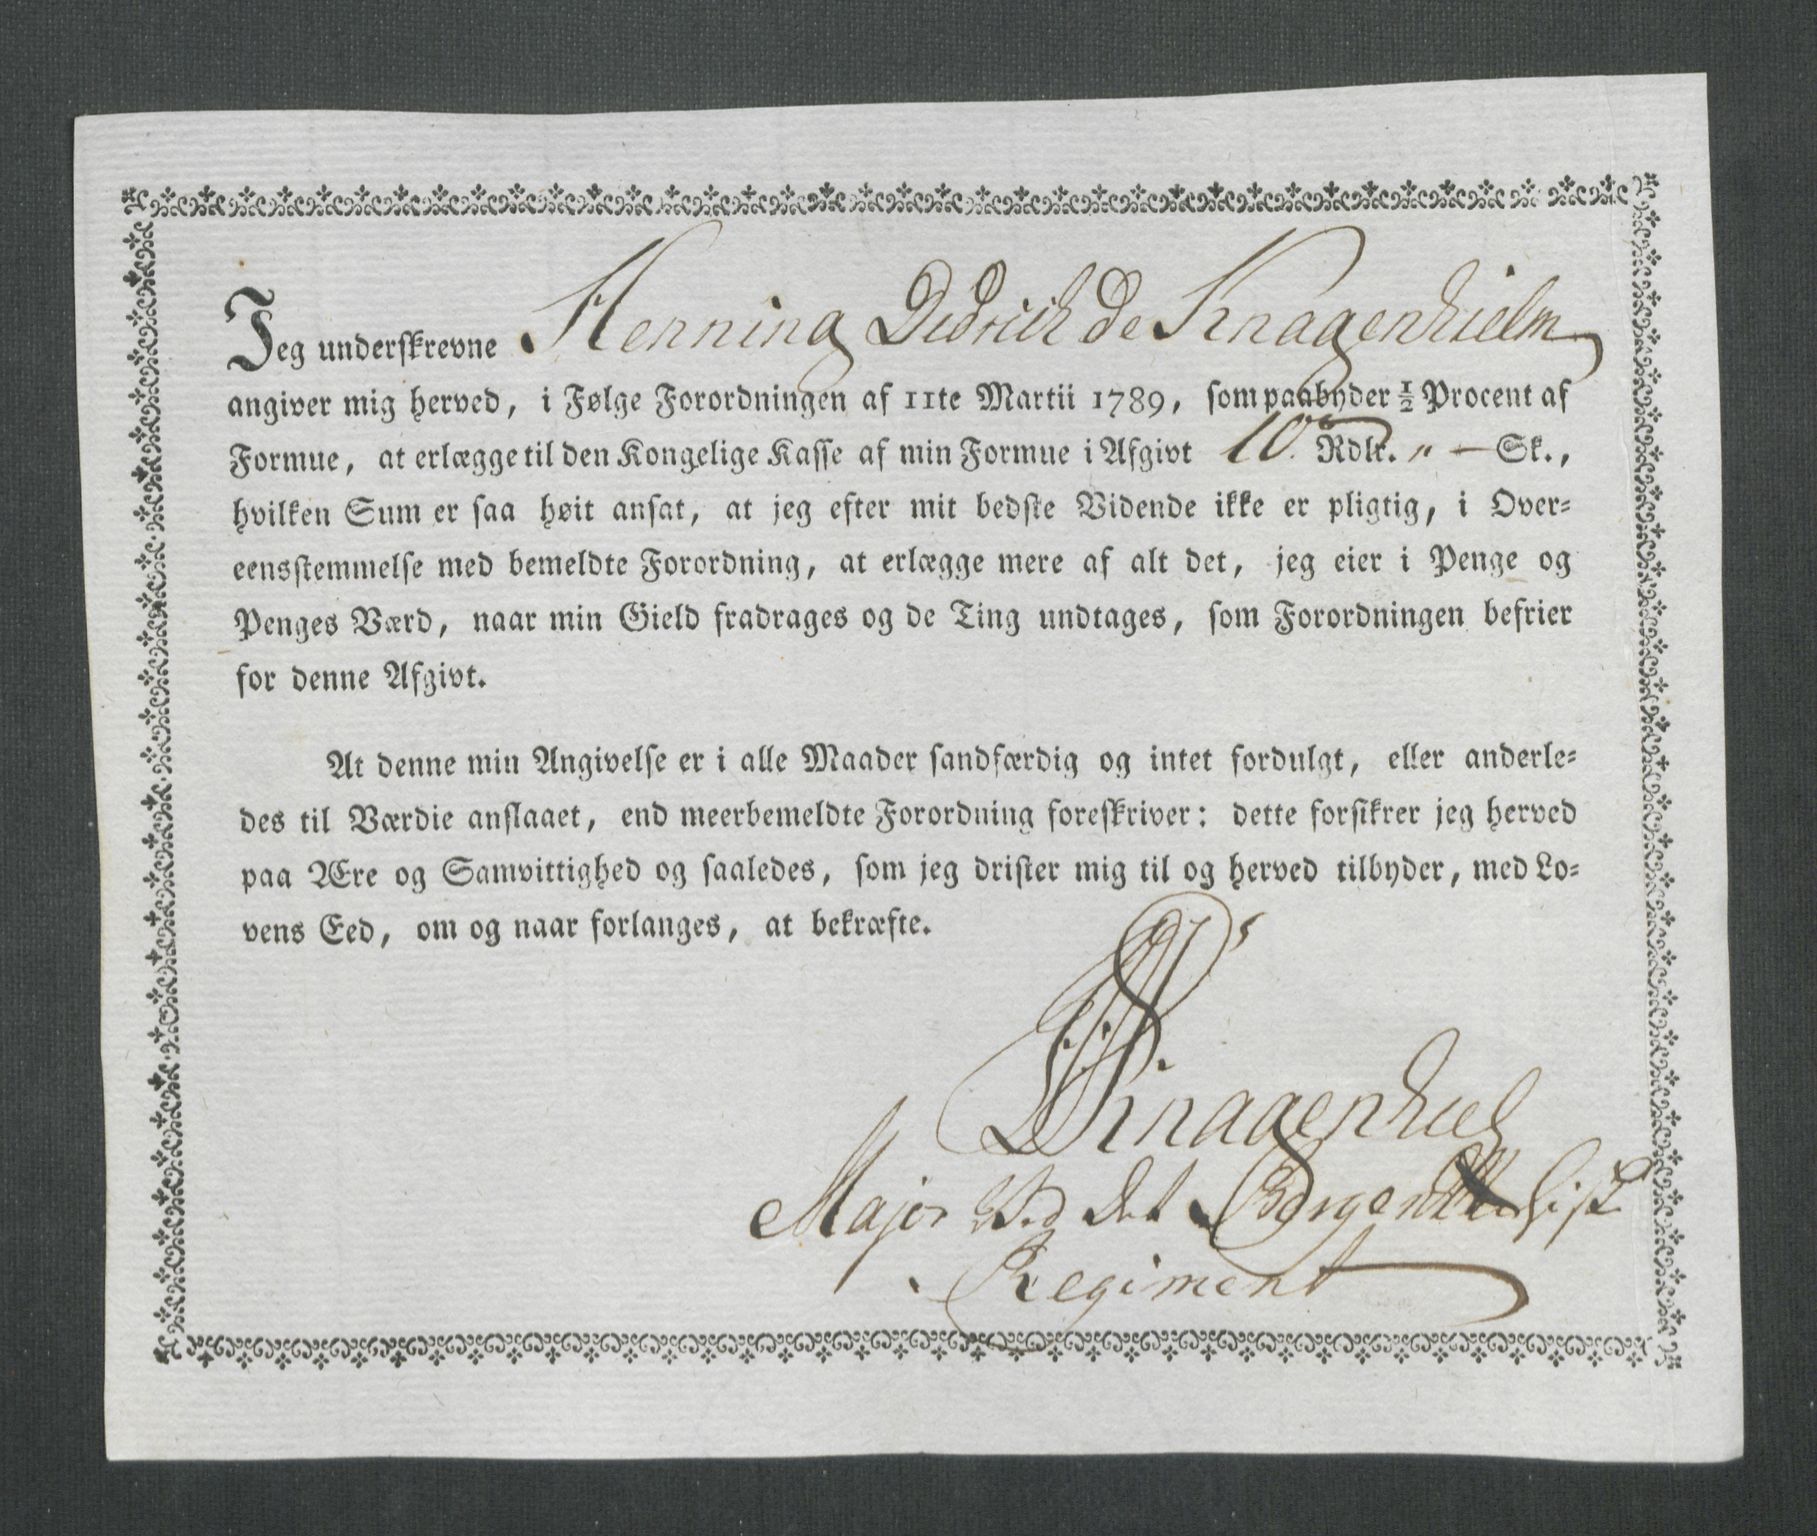 Jeg underskrevne Henning Didrich de Knagenhielm
angiver mig herved, i Følge Forordningen af 11te Martii 1789, som paabyder ½ Procent af
Formue, at erlægge til den Kongelige Kasse af min Formue i Afgivt 10 Rdlr. „ — Sk.,
hvilken Sum er saa høit ansat, at jeg efter mit bedste Vidende ikke er pligtig, i Over-
eensstemmelse med bemeldte Forordning, at erlægge mere af alt det, jeg eier i Penge og
Penges Værd, naar min Gield fradrages og de Ting undtages, som Forordningen befrier
for denne Afgivt.
At denne min Angivelse er i alle Maader sandfærdig og intet fordulgt, eller anderle-
des til Værdie anslaaet, end meerbemeldte Forordning foreskriver: dette forsikrer jeg herved
paa Ære og Samvittighed og saaledes, som jeg drister mig til og herved tilbyder, med Lo-
vens Eed, om og naar forlanges, at bekræfte.
Knagenhiel
Major Ved det
Regiment